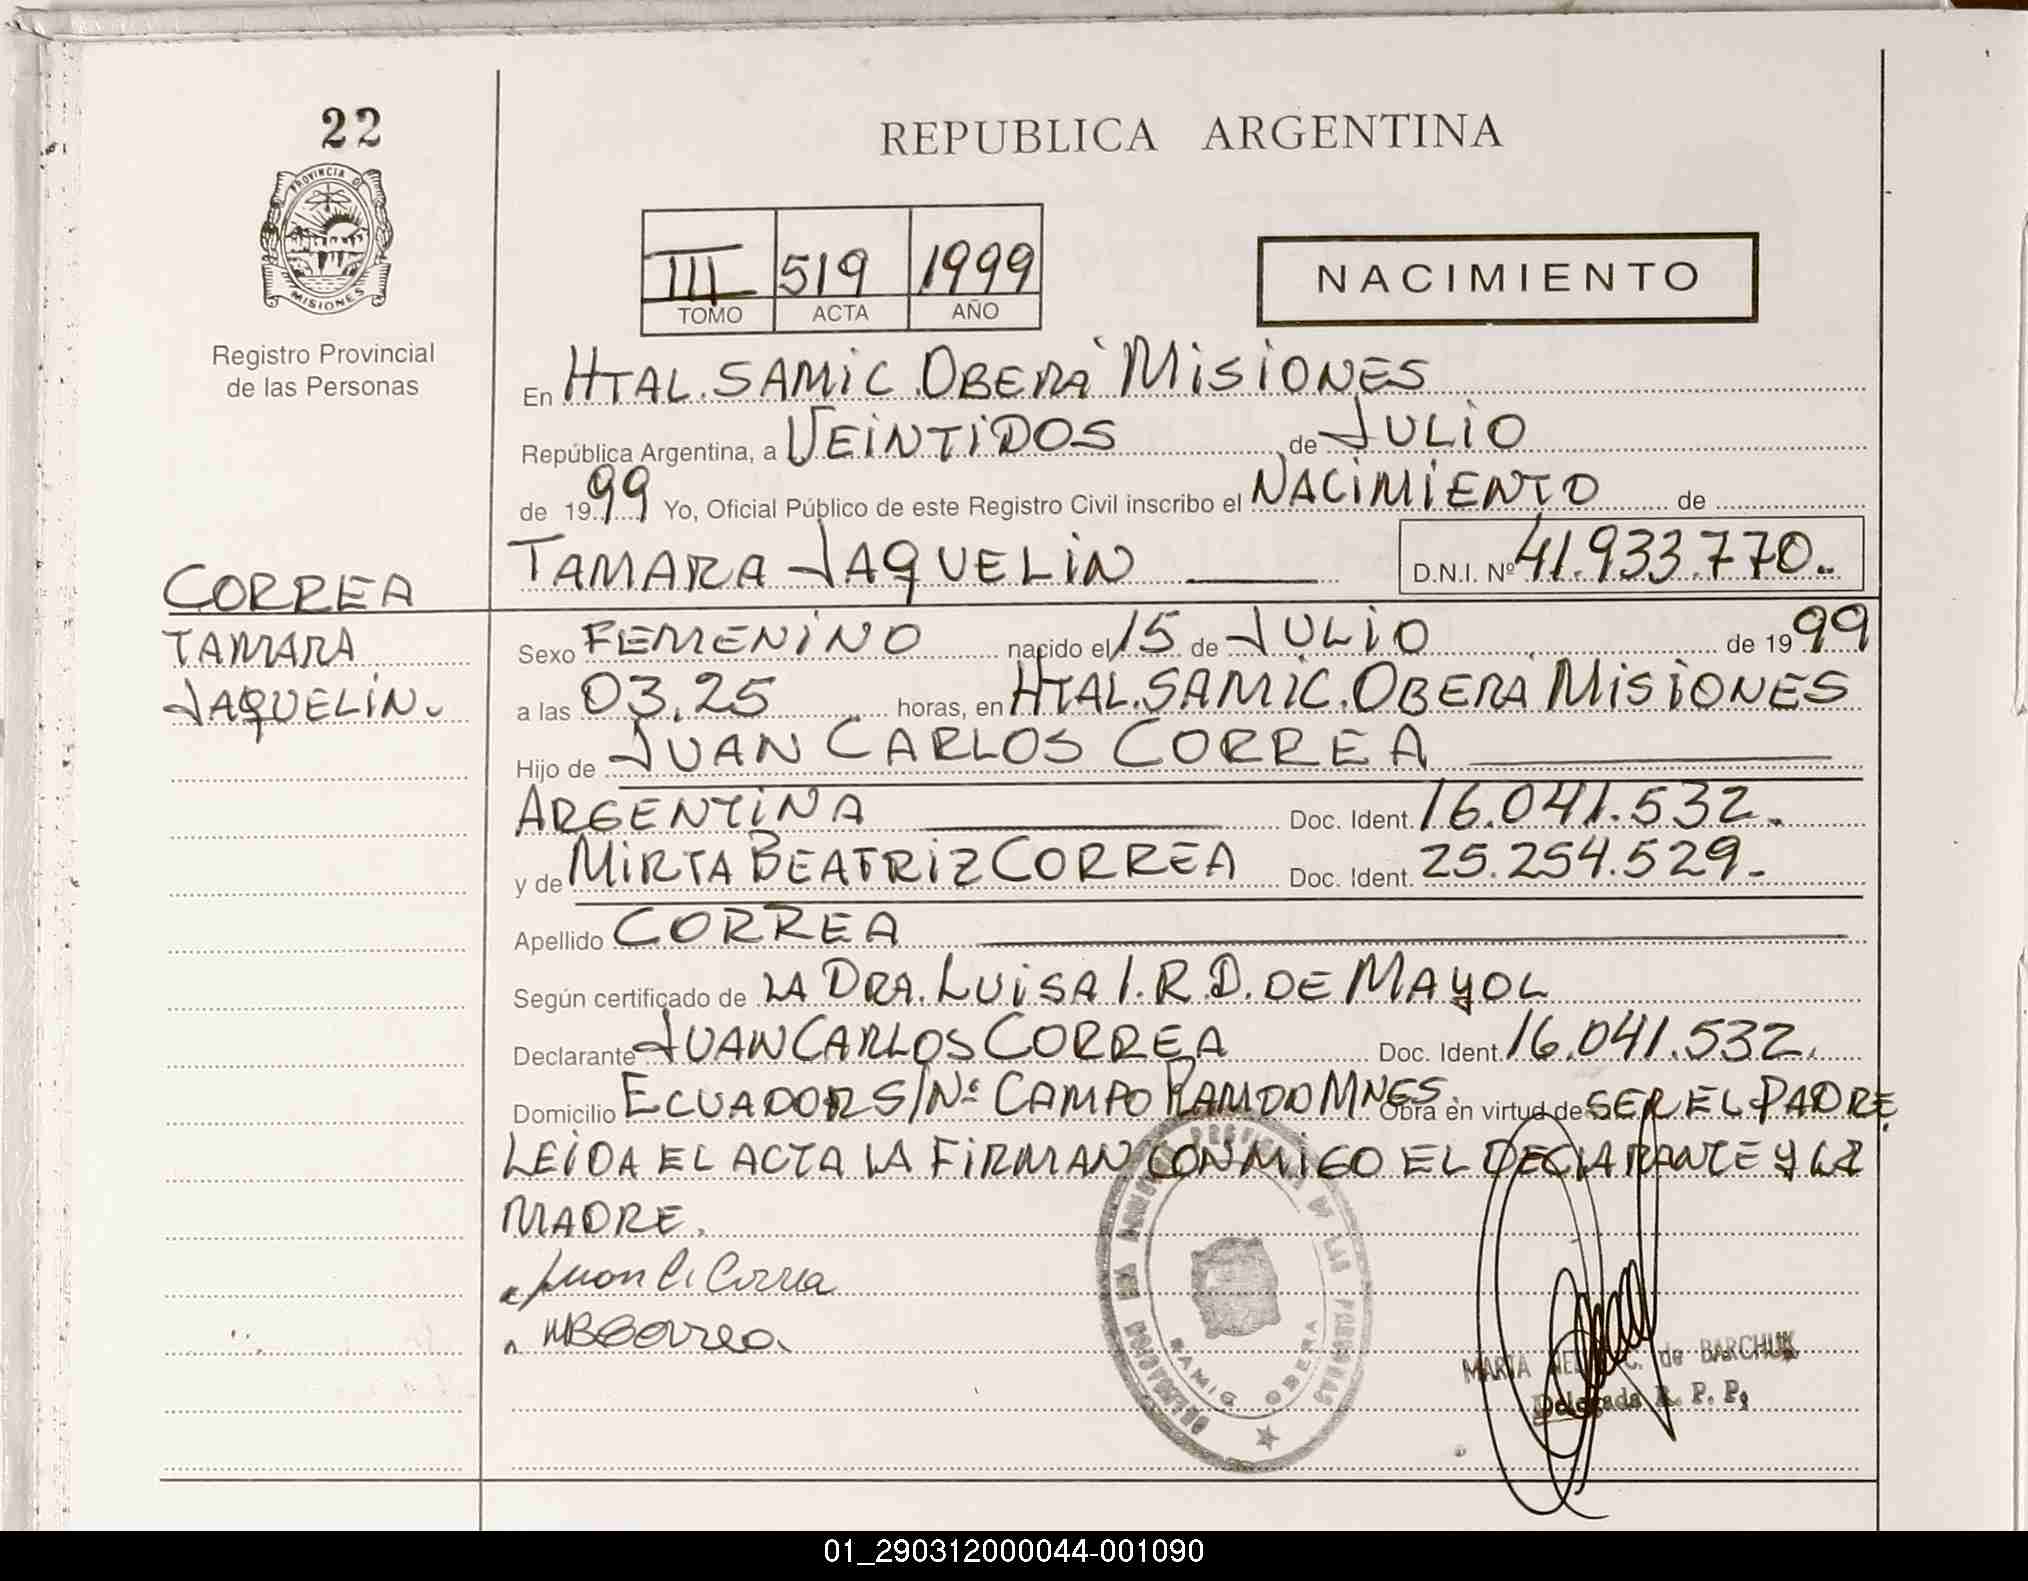 22
PROVINCIA DE
MISIONES
Registro Provincial
de las Personas
REPUBLICA ARGENTINA
III 519 1999
TOMO ACTA AÑO
NACIMIENTO
En HTAL. SAMIC. OBERA MISIONES
República Argentina, a VEINTIDOS de JULIO
de 1999 Yo, Oficial Público de este Registro Civil inscribo el NACIMIENTO de
TAMARA JAQUELIN D.N.I. Nº 41.933.770.
CORREA
TAMARA
JAQUELIN.
Sexo FEMENINO nacido el 15 de JULIO de 1999
a las 03.25 horas, en HTAL. SAMIC. OBERA MISIONES
Hijo de JUAN CARLOS CORREA
ARGENTINA Doc. Ident. 16.041.532.
y de MIRTA BEATRIZ CORREA Doc. Ident. 25.254.529.-
Apellido CORREA
Según certificado de LA DRA. LUISA I. R. D. DE MAYOL
Declarante JUAN CARLOS CORREA Doc. Ident. 16.041.532.
Domicilio ECUADOR S/Nº CAMPO RAMON MNES. Obra en virtud de SER EL PADRE.
LEIDA EL ACTA LA FIRMAN CONMIGO EL DECLARANTE Y LA
MADRE.
Juan C. Correa
MBCorrea
DE LAS PERSONAS
OBERA
MARTA C. de BARCHUK
Delegada R. P. P.
01_290312000044-001090